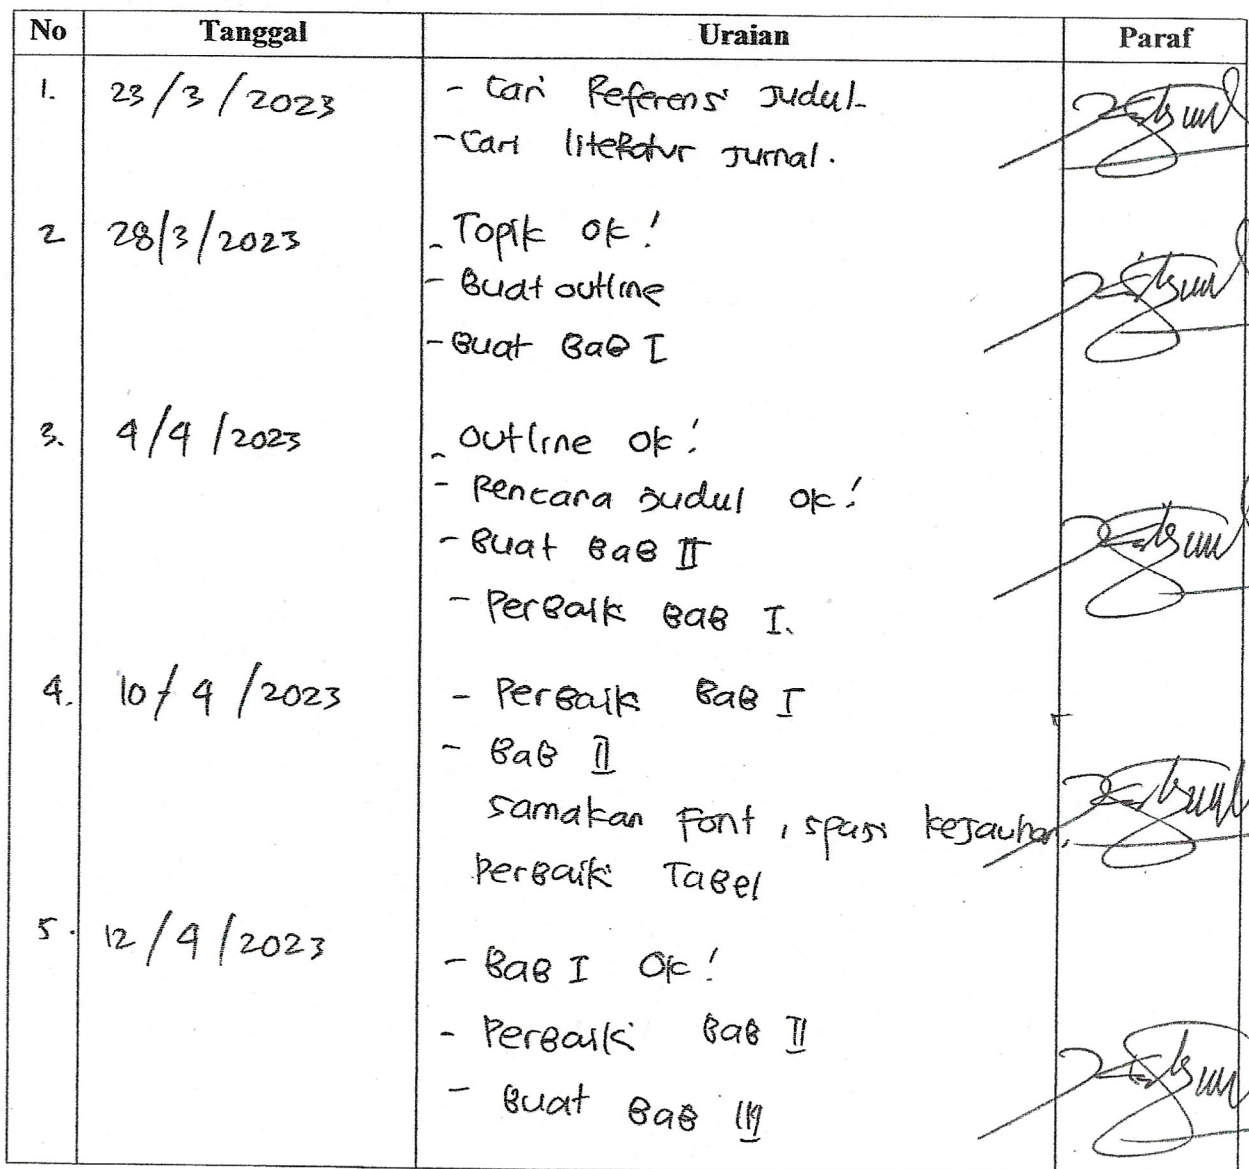 No Tanggal Uraian Paraf
1. 23/3/2023 - Cari Referensi Judul
- Cari literatur Jurnal.
2 28/3/2023 - Topik ok!
- Buat outline
- Buat BaB I
3. 4/4/2023 - outline ok!
- Rencana Judul ok!
- Buat BaB II
- PerBaik BAB I.
4. 10/4/2023 - PerBaik BaB I
- BaB II
samakan Font, spasi kejauhan,
PerBaiki TaBel
5. 12/4/2023
- BaB I Ok!
- PerBaiki BaB II
- Buat BaB III